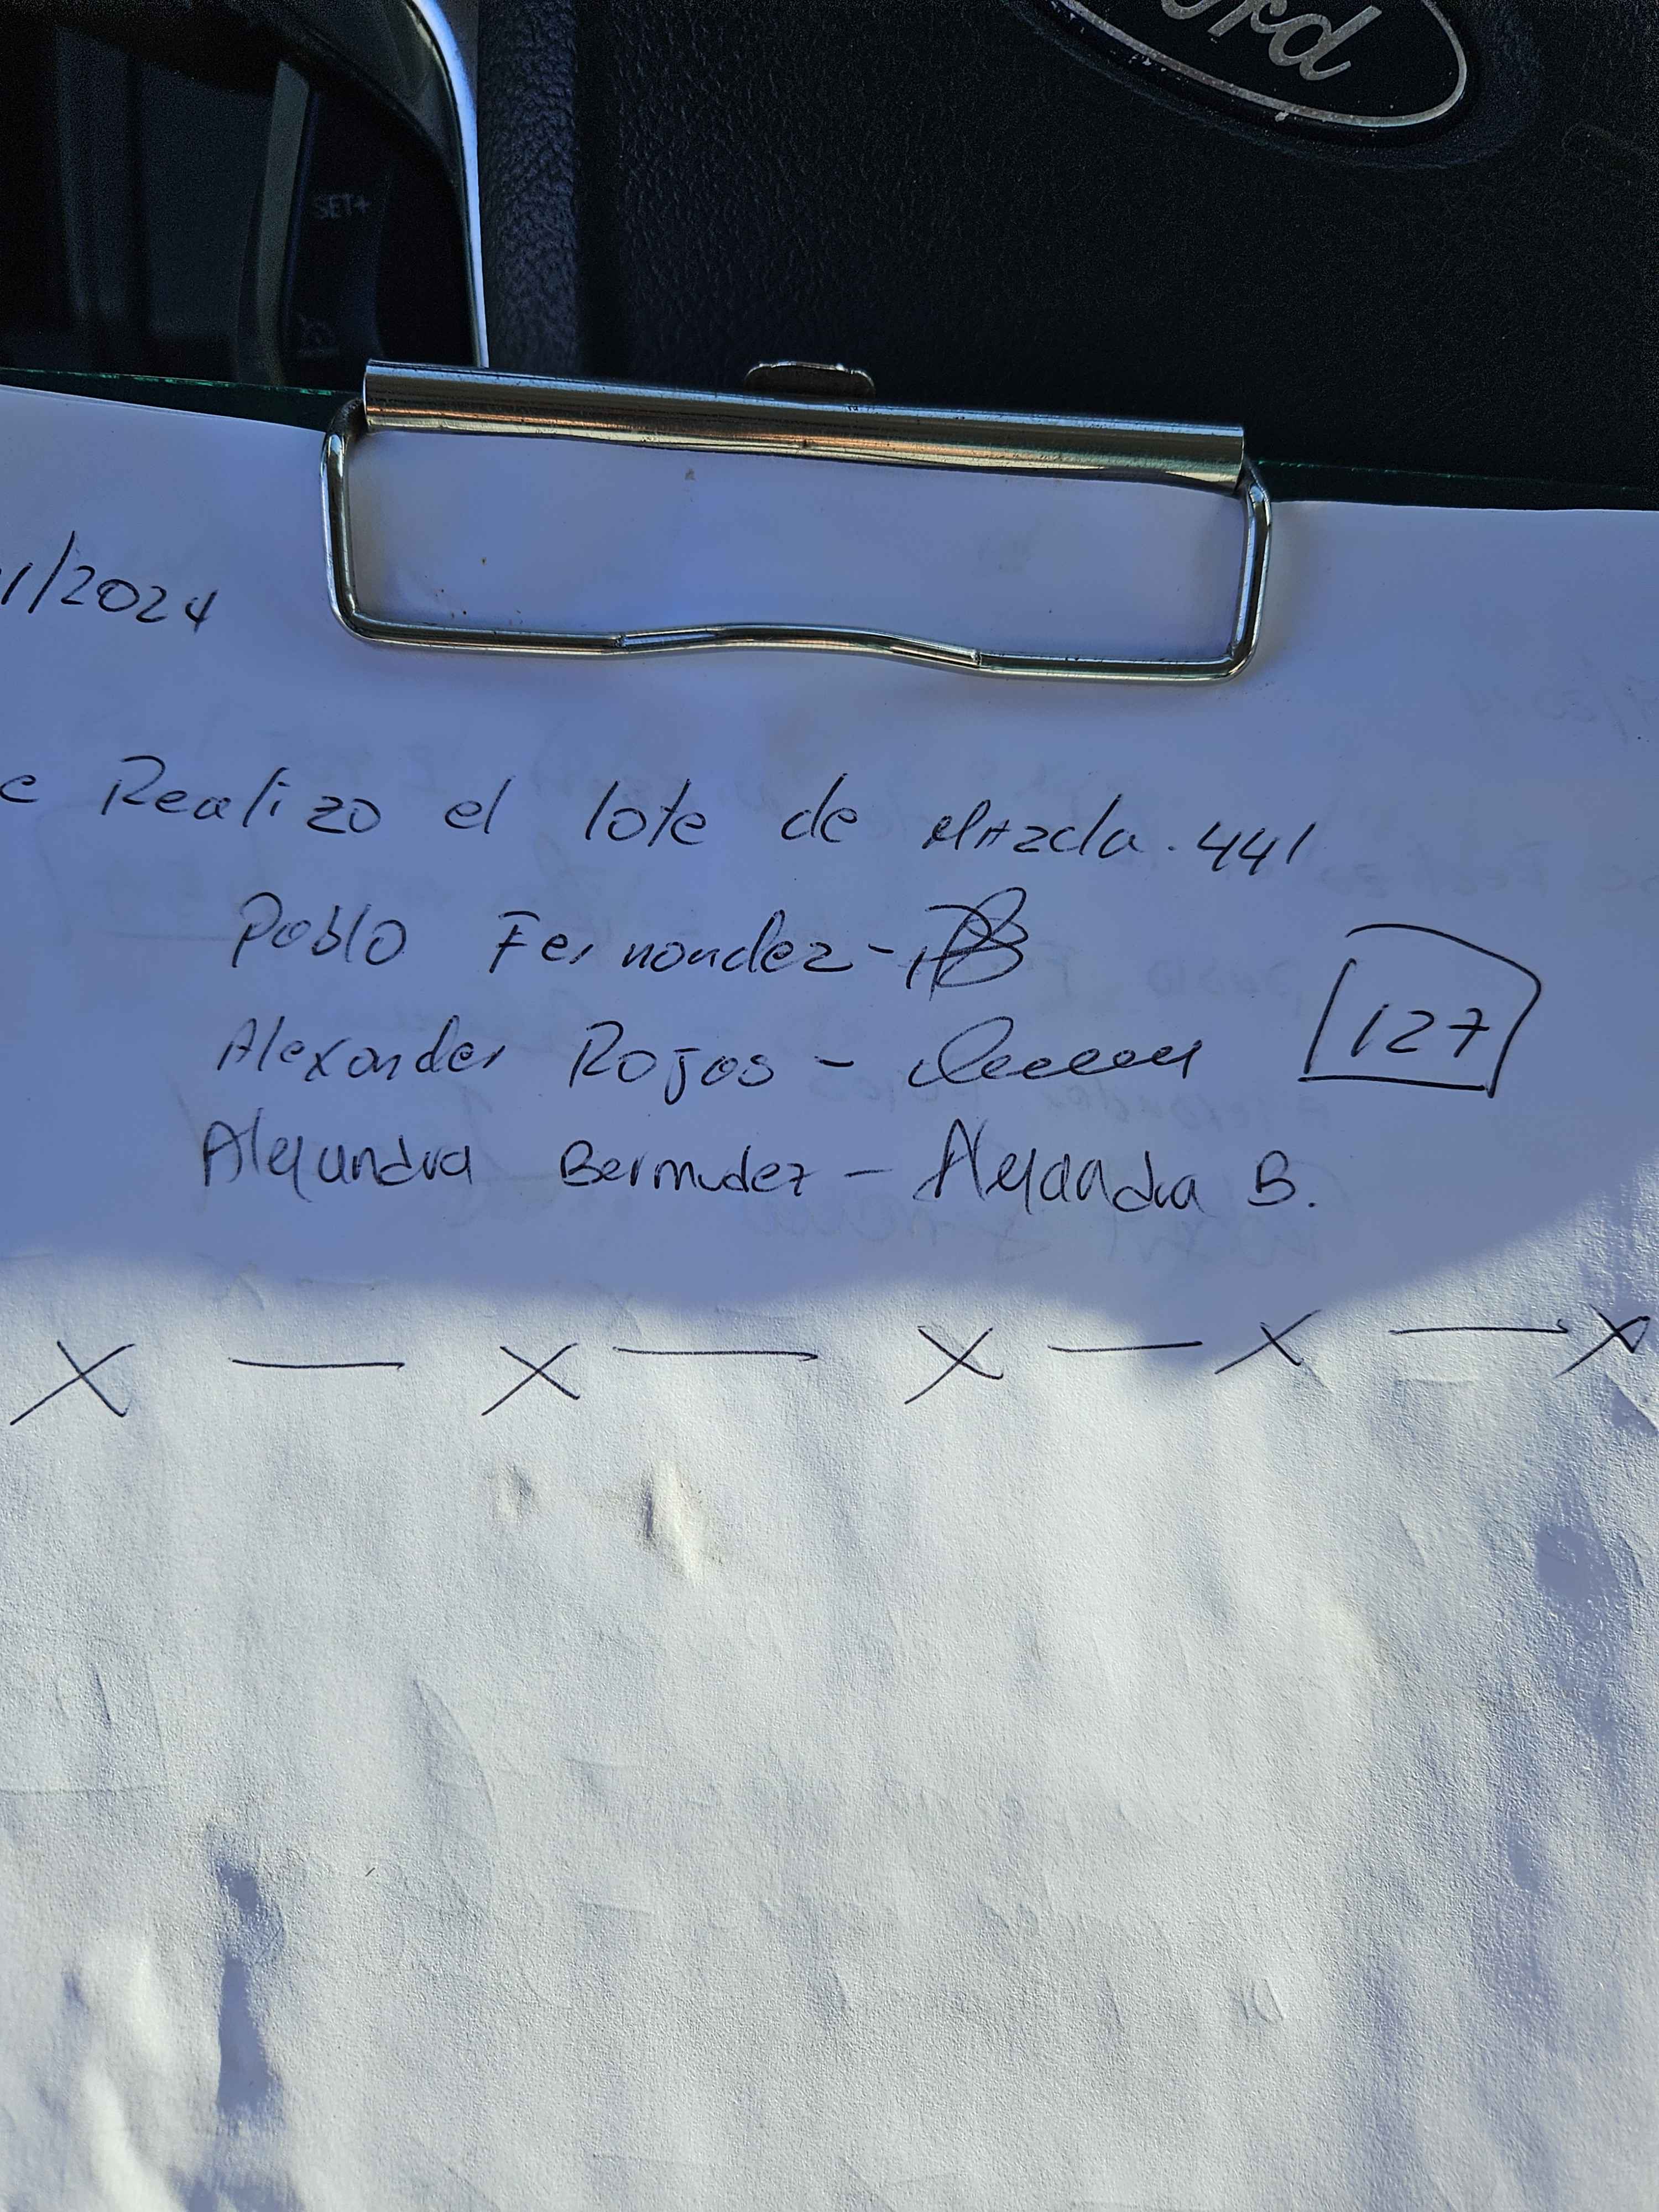 ord
SET+
1/2024
e Realizo el lote de Mazcla. 441
Pablo Fernandez -
Alexander Rojas -
127
Alejandra Bermudez - Alejandra B.
X — X — X — X — X